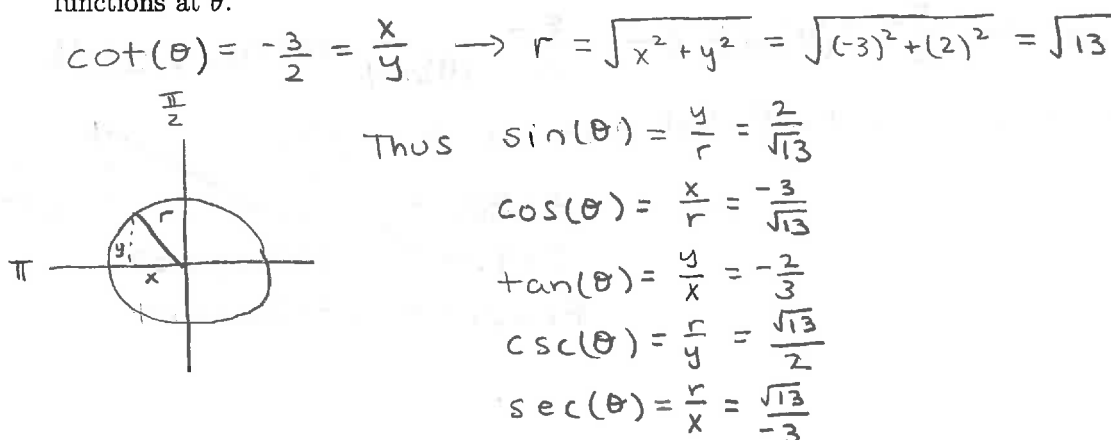 functions at θ.
cot(θ) = -3/2 = x/y → r = √(x² + y²) = √((-3)² + (2)²) = √13
π/2
Thus sin(θ) = y/r = 2/√13
cos(θ) = x/r = -3/√13
r
y
π
x
tan(θ) = y/x = -2/3
csc(θ) = r/y = √13/2
sec(θ) = r/x = √13/-3